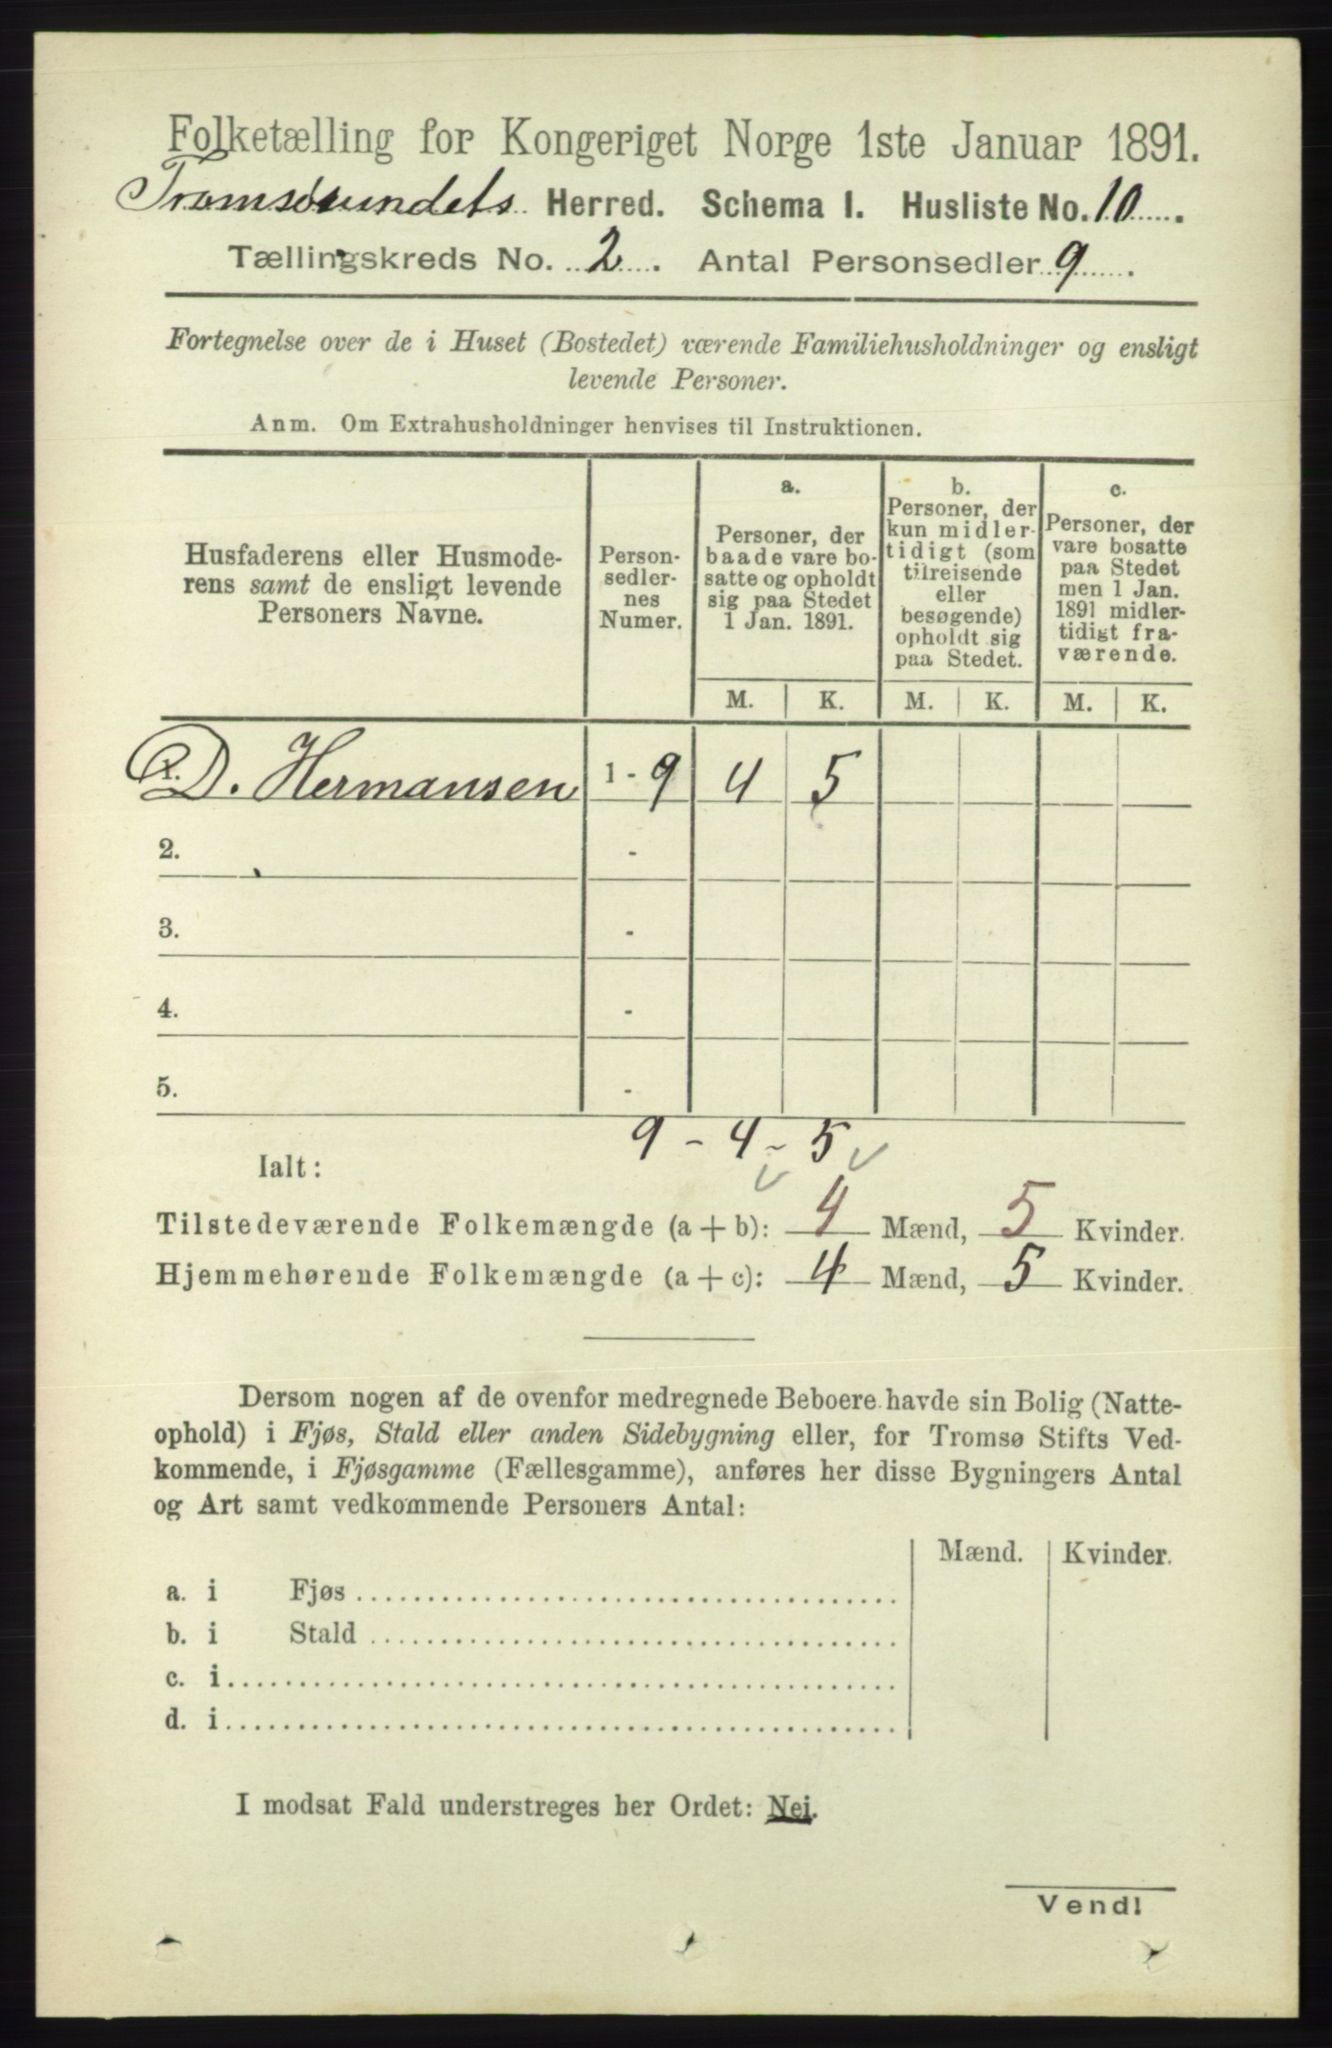 Folketælling for Kongeriget Norge 1ste Januar 1891.
Tromsøsundets Herred. Schema I. Husliste No. 10
Tællingskreds No. 2. Antal Personsedler 9.
Fortegnelse over de i Huset (Bostedet) værende Familiehusholdninger og ensligt
levende Personer.
Anm. Om Extrahusholdninger henvises til Instruktionen.
Husfaderens eller Husmode-
rens samt de ensligt levende
Personers Navne.
Person-
sedler-
nes
Numer.
a.
Personer, der
baade vare bo-
satte og opholdt
sig paa Stedet
1 Jan. 1891.
b.
Personer, der
kun midler-
tidigt (som
tilreisende
eller
besøgende)
opholdt sig
paa Stedet.
c.
Personer, der
vare bosatte
paa Stedet
men 1 Jan.
1891 midler-
tidigt fra-
værende.
M. K. M. K. M. K.
D. Hermansen 1 - 9 4 5
2. -
3. -
4. -
5. -
9 - 4 - 5
Ialt:
Tilstedeværende Folkemængde (a + b): 4 Mænd, 5 Kvinder.
Hjemmehørende Folkemængde (a + c): 4 Mænd, 5 Kvinder.
Dersom nogen af de ovenfor medregnede Beboere havde sin Bolig (Natte-
ophold) i Fjøs, Stald eller anden Sidebygning eller, for Tromsø Stifts Ved-
kommende, i Fjøsgamme (Fællesgamme), anføres her disse Bygningers Antal
og Art samt vedkommende Personers Antal:
Mænd. Kvinder.
a. i Fjøs
b. i Stald
c. i
d. i
I modsat Fald understreges her Ordet: Nei.
Vend!